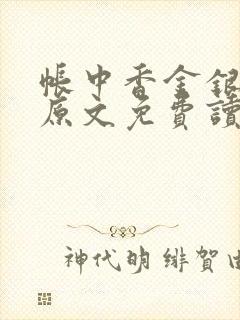 帳中香金銀
原文免費讀
神代明 緋賀由